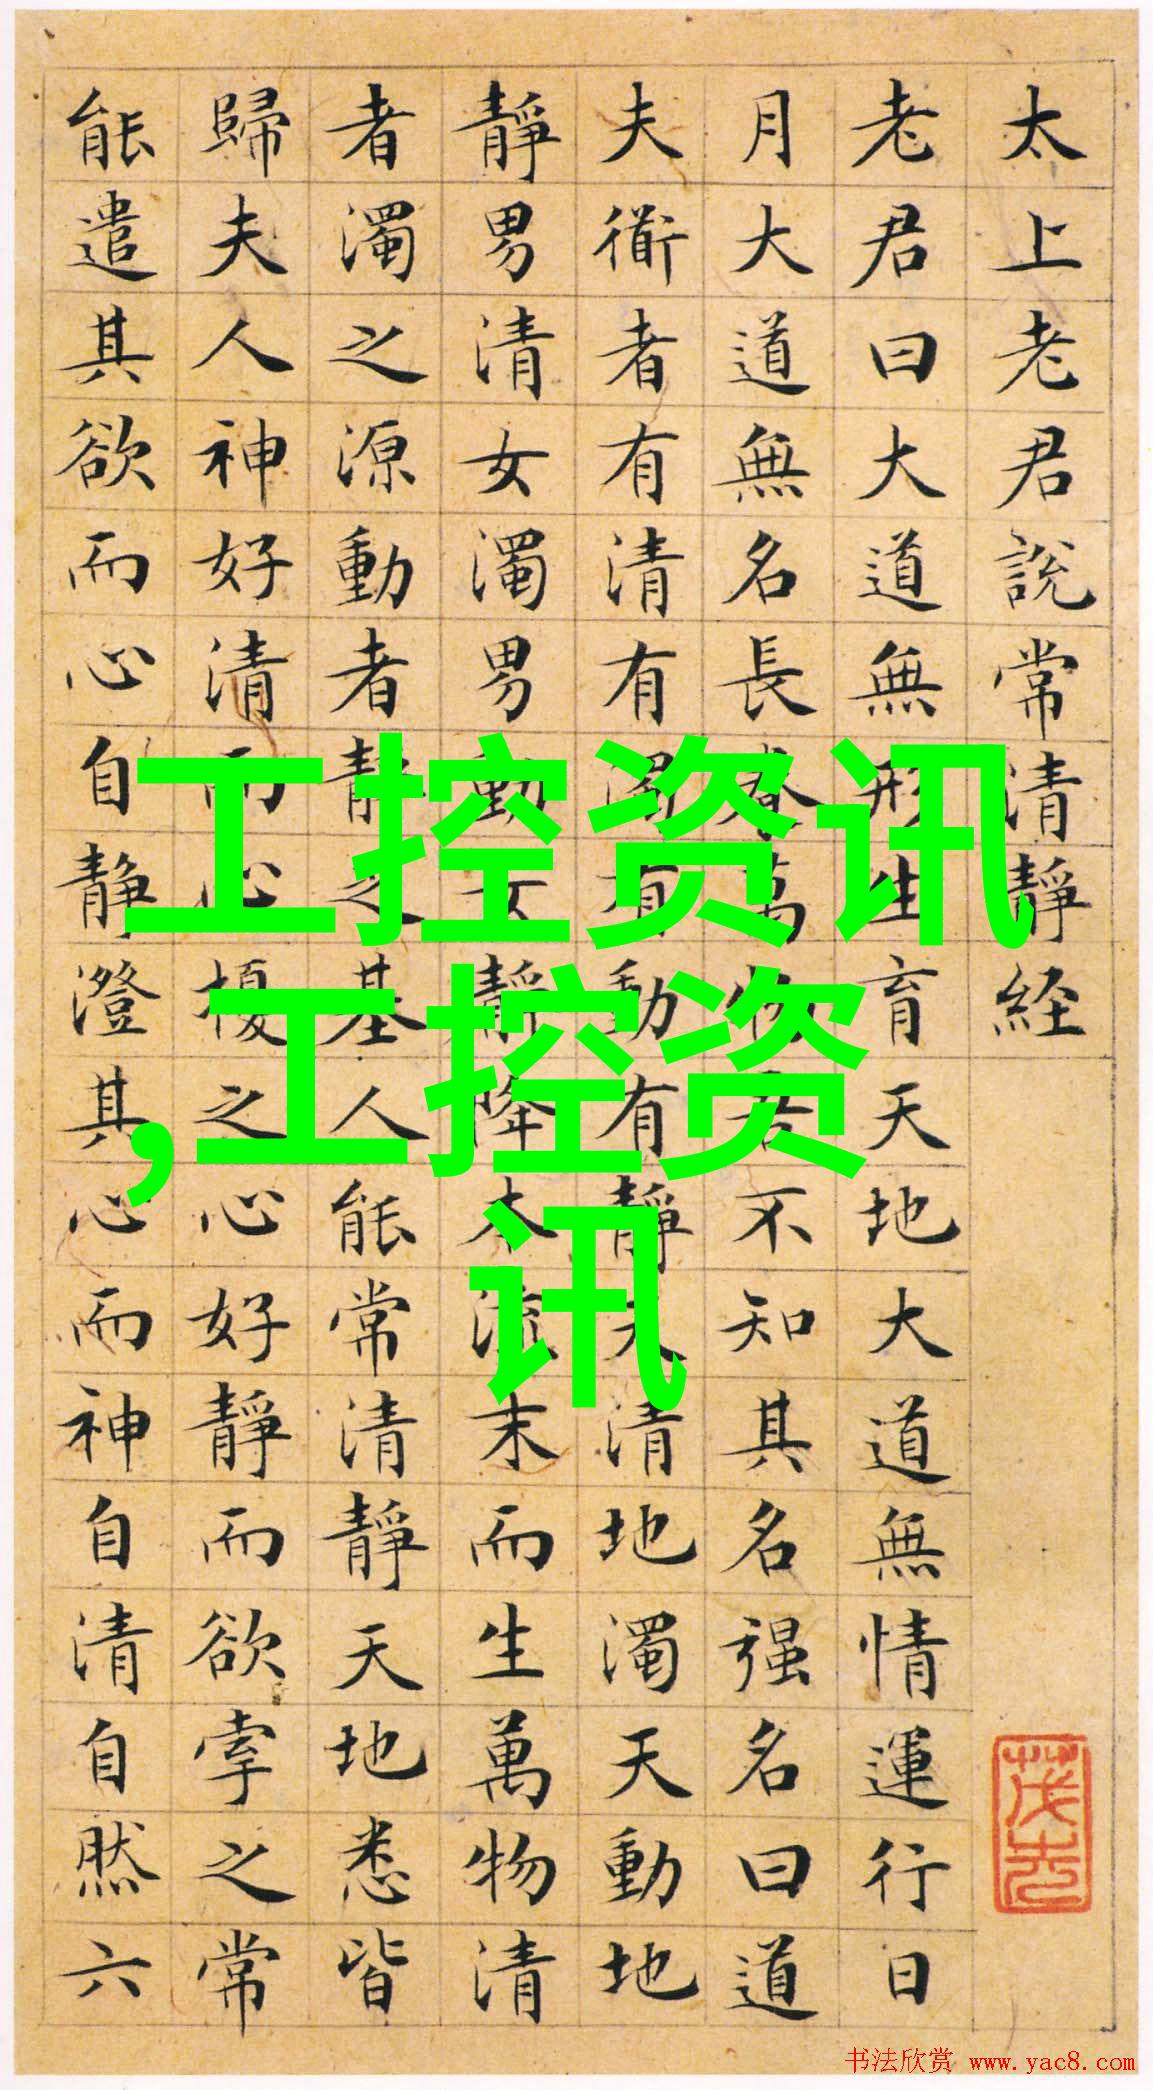 太上老君說常清靜経
老君曰大道無形生育天地大道無情運行日
月大道無名長養萬物吾不知其名强名曰道
夫衜者有清有濁有動有靜天清地濁天動地
靜男清女濁男動女靜降本流末而生萬物清
者濁之源動者靜之基人能常清靜天地悉皆
歸夫人神好清而心擾之心好靜而欲牽之常
能遣其欲而心自静澄其心而神自清自然六
工控资讯
,工控资
讯
书法欣赏 www.yac8.com